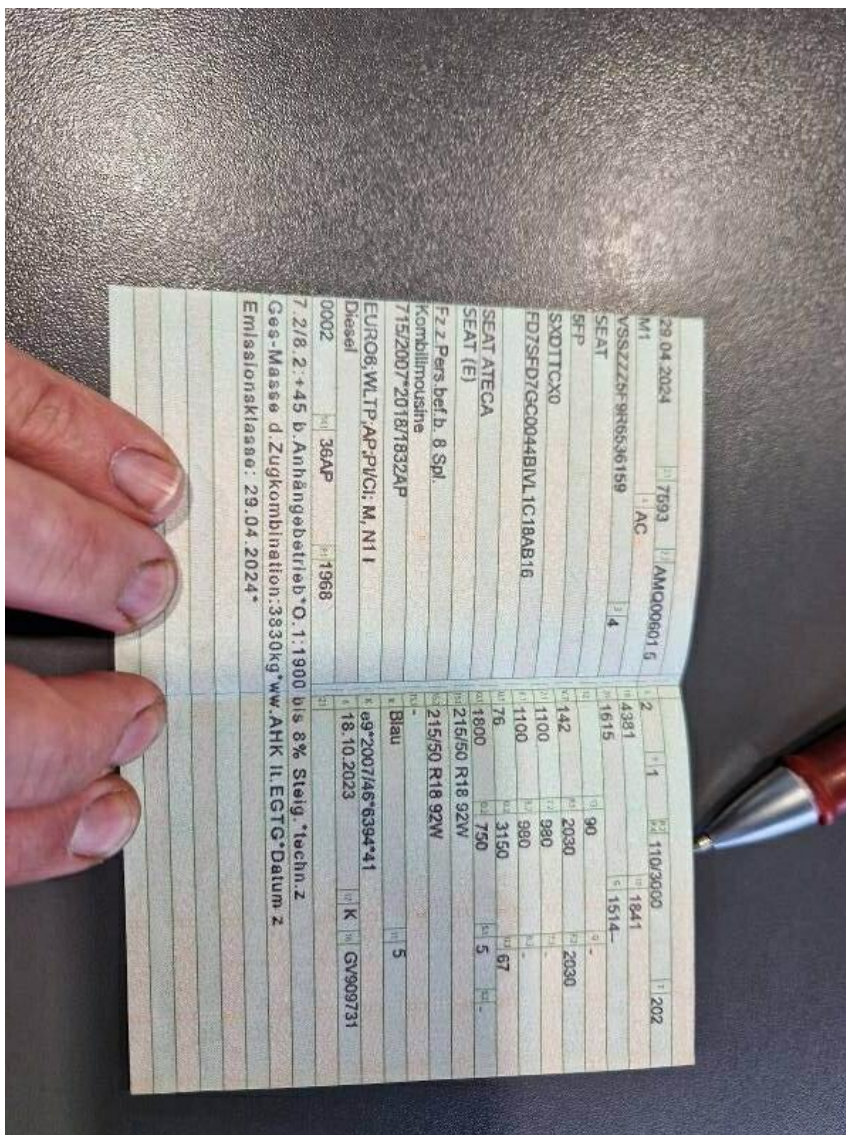 29.04.2024 7593 AMQ00601 5
M1 AC
VSSZZZ5F9R6536159 4
SEAT
5FP
SXDTTCX0
FD7SFD7GC0044BIVL1C18AB16
SEAT ATECA
SEAT (E)
Fz.z.Pers.bef.b. 8 Spl.
Kombilimousine
715/2007*2018/1832AP
EURO6;WLTP;AP;PI/CI; M, N1 I
Diesel
0002 36AP 1968
2 1 110/3000 202
4381 1841
1615 1514–
90 -
142 2030 2030
1100 980 -
1100 980 -
76 3150 67
1800 750 5 -
215/50 R18 92W
215/50 R18 92W
-
Blau 5
e9*2007/46*6394*41
18.10.2023 K GV909731
7.2/8.2:+45 b.Anhängebetrieb*O.1:1900 bis 8% Steig.*techn.z
Ges-Masse d.Zugkombination:3830kg*ww.AHK lt.EGTG*Datum z
Emissionsklasse: 29.04.2024*